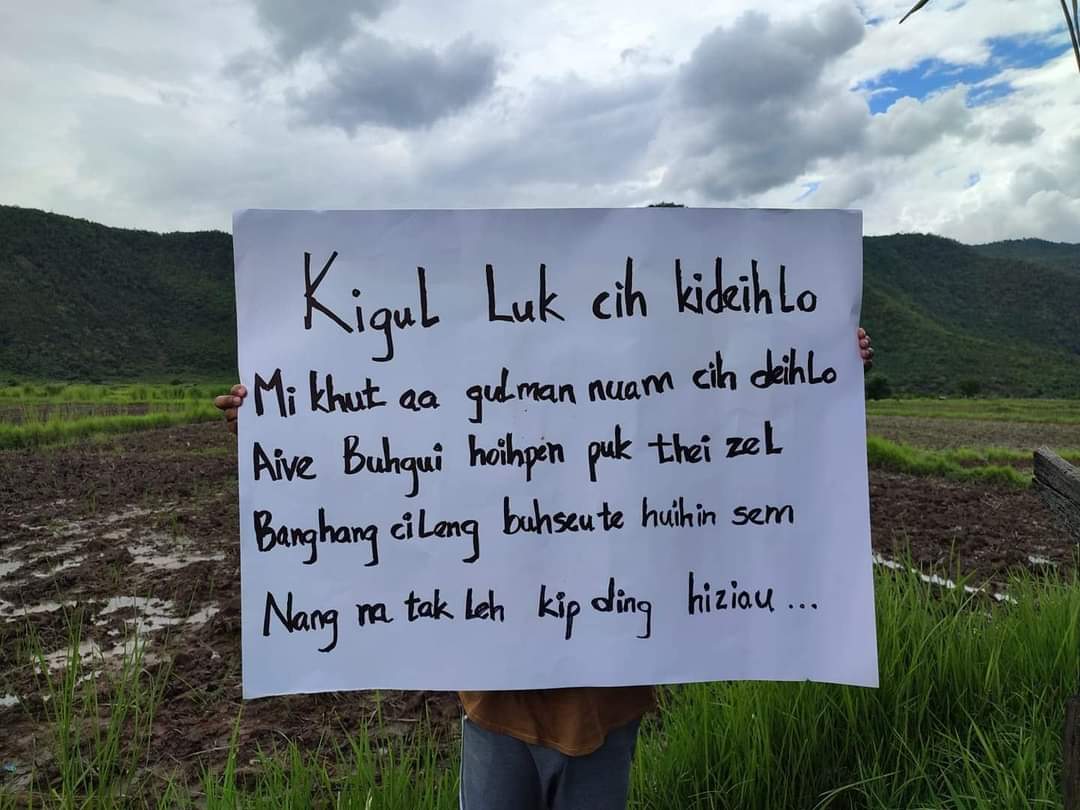 Kigul Luk cih kideihlo
Mi khut aa gulman nuam cih deihlo
Aive Buhgui hoihpen puk thei zel
Banghang ci leng buhseute huihin sem
Nang na tak leh kip ding hiziau ...